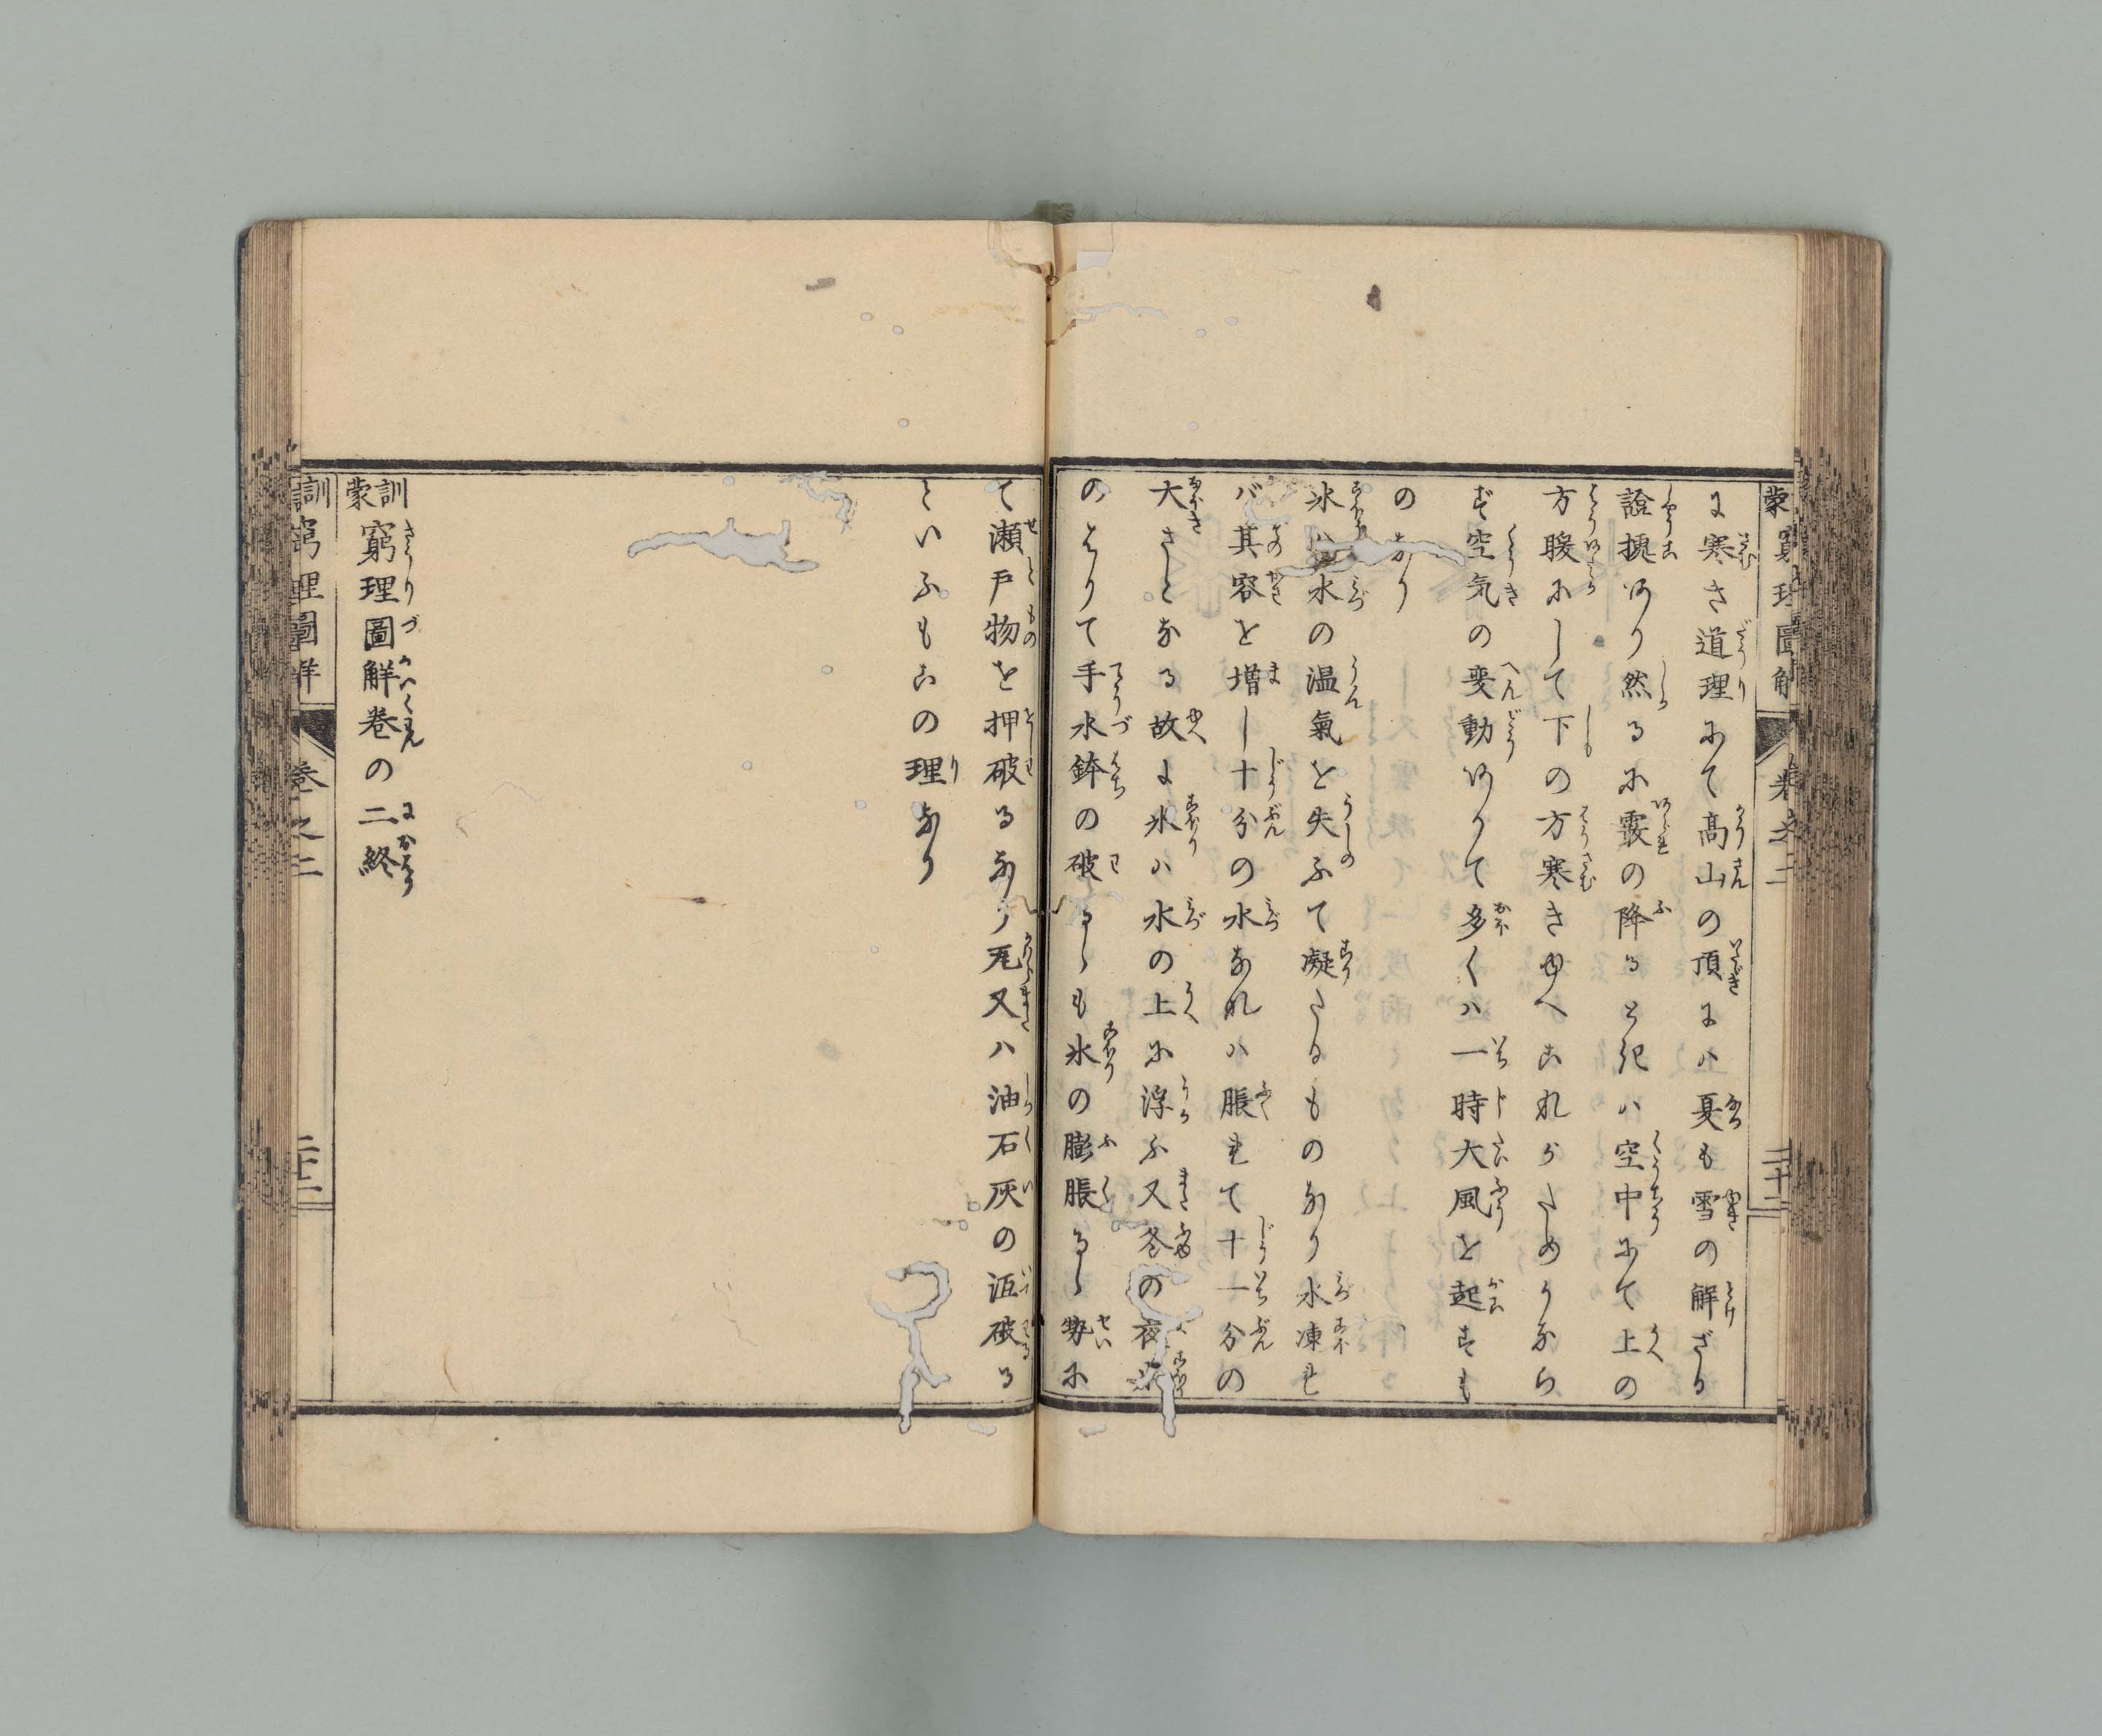 に寒き道理にて高山の頂には夏も雪の解ざる
證拠あり然るに霰の降ると記ハ空中にて上の
方暖にして下の方寒きゆへこれがためかなら
ず空気の変動ありて多くハ一時大風を起すも
のなり
氷ハ水の温氣を失ふて凝たるものなり水凍れ
バ其容を増し十分の水なれハ脹れて十一分の
大さとなる故に氷ハ水の上に浮ふ又冬の夜
のはりて手水鉢の破るゝも氷の膨脹るゝ勢に
て瀬戸物を押破るなり瓦又ハ油石灰の沍破る
といふもこの理なり
訓蒙窮理圖解卷の二終
訓蒙窮理圖解 卷之二 二十二